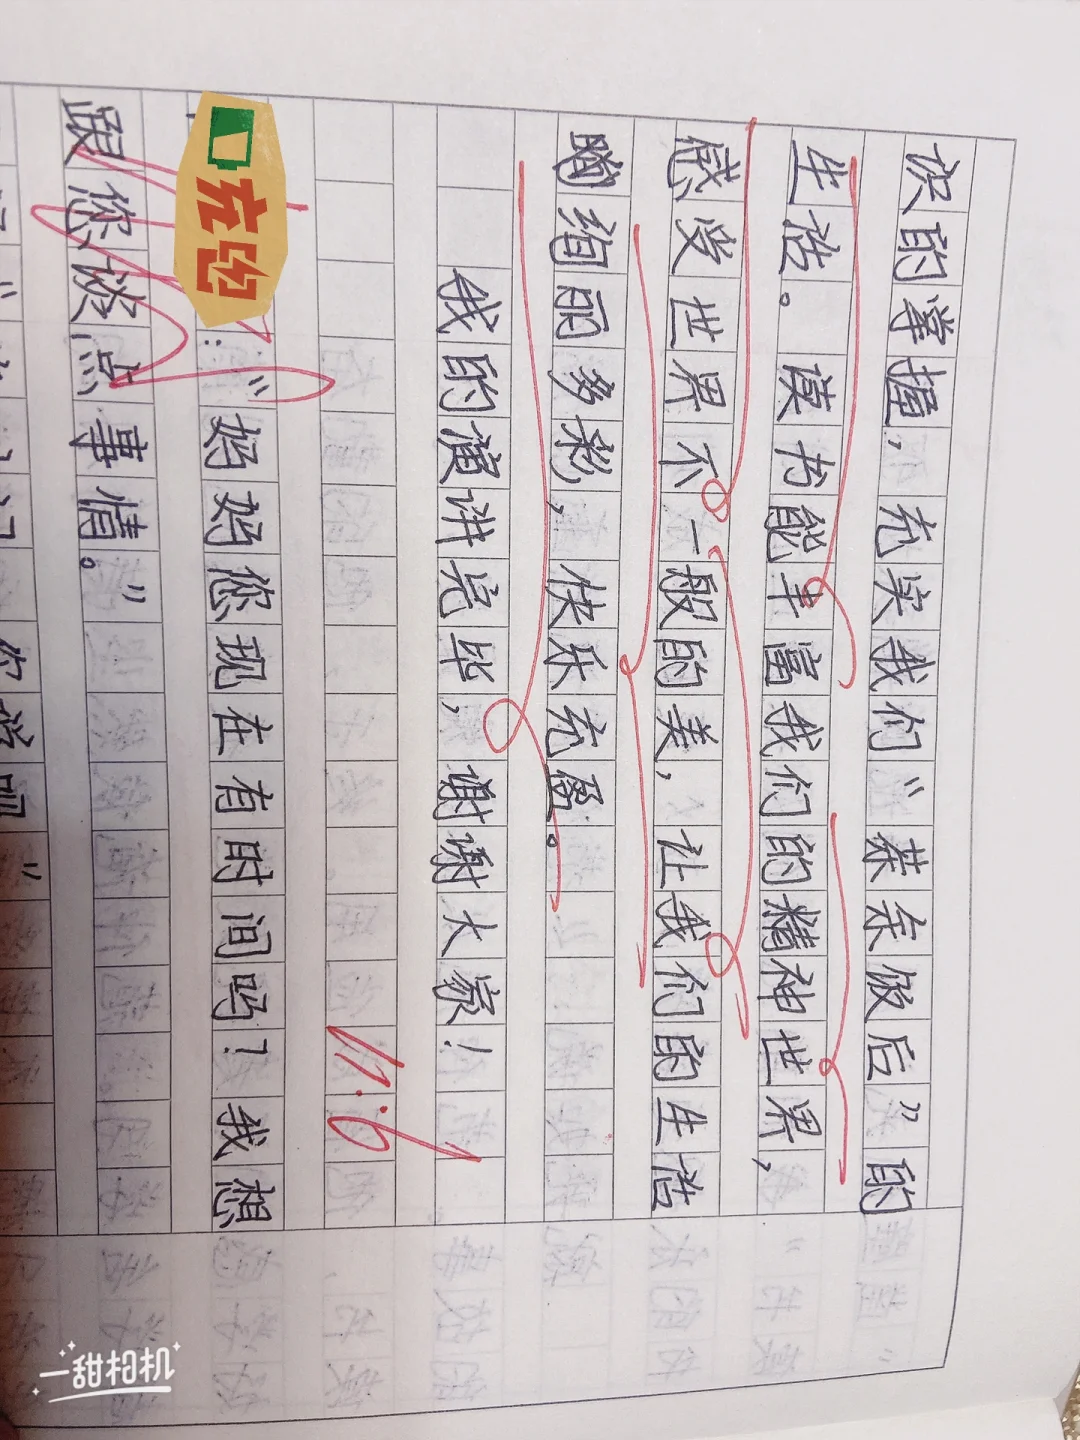 识的掌握，充实我们“茶余饭后”的
生活。读书能丰富我们的精神世界，
感受世界不一般的美，让我们的生活
绚丽多彩，快乐充盈。
我的演讲完毕，谢谢大家！
11.6
充电
：“妈妈您现在有时间吗？我想
跟您谈点事情。”
一甜相机